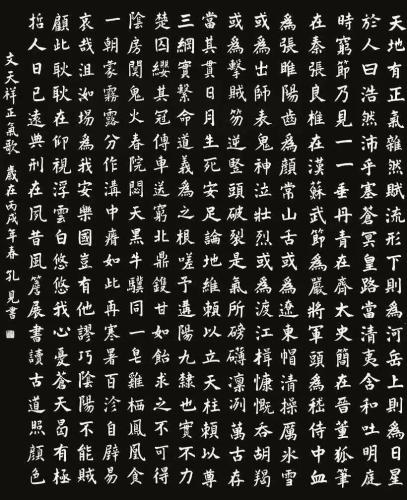 天地有正氣雜然賦流形下則為河岳上則為日星
於人曰浩然沛乎塞蒼冥皇路當清夷含和吐明庭
時窮節乃見一一垂丹青在齊太史簡在晉董狐筆
在秦張良椎在漢蘇武節為嚴將軍頭為嵇侍中血
為張睢陽齒為顏常山舌或為遼東帽清操厲氷雪
或為出師表鬼神泣壯烈或為渡江楫慷慨吞胡羯
或為擊賊笏逆豎頭破裂是氣所磅礴凛冽萬古存
當其貫日月生死安足論地維賴以立天柱賴以尊
三綱實繫命道義為之根嗟予遘陽九隸也實不力
楚囚纓其冠傳車送窮北鼎鑊甘如飴求之不可得
陰房闃鬼火春院閟天黑牛驥同一皂雞栖鳳凰食
一朝蒙霧露分作溝中瘠如此再寒暑百沴自辟易
哀哉沮洳場為我安樂國豈有他謬巧陰陽不能賊
顧此耿耿在仰視浮雲白悠悠我心憂蒼天曷有極
哲人日已遠典刑在夙昔風簷展書讀古道照顏色
文天祥正氣歌 歲在丙戌年春 孔見書